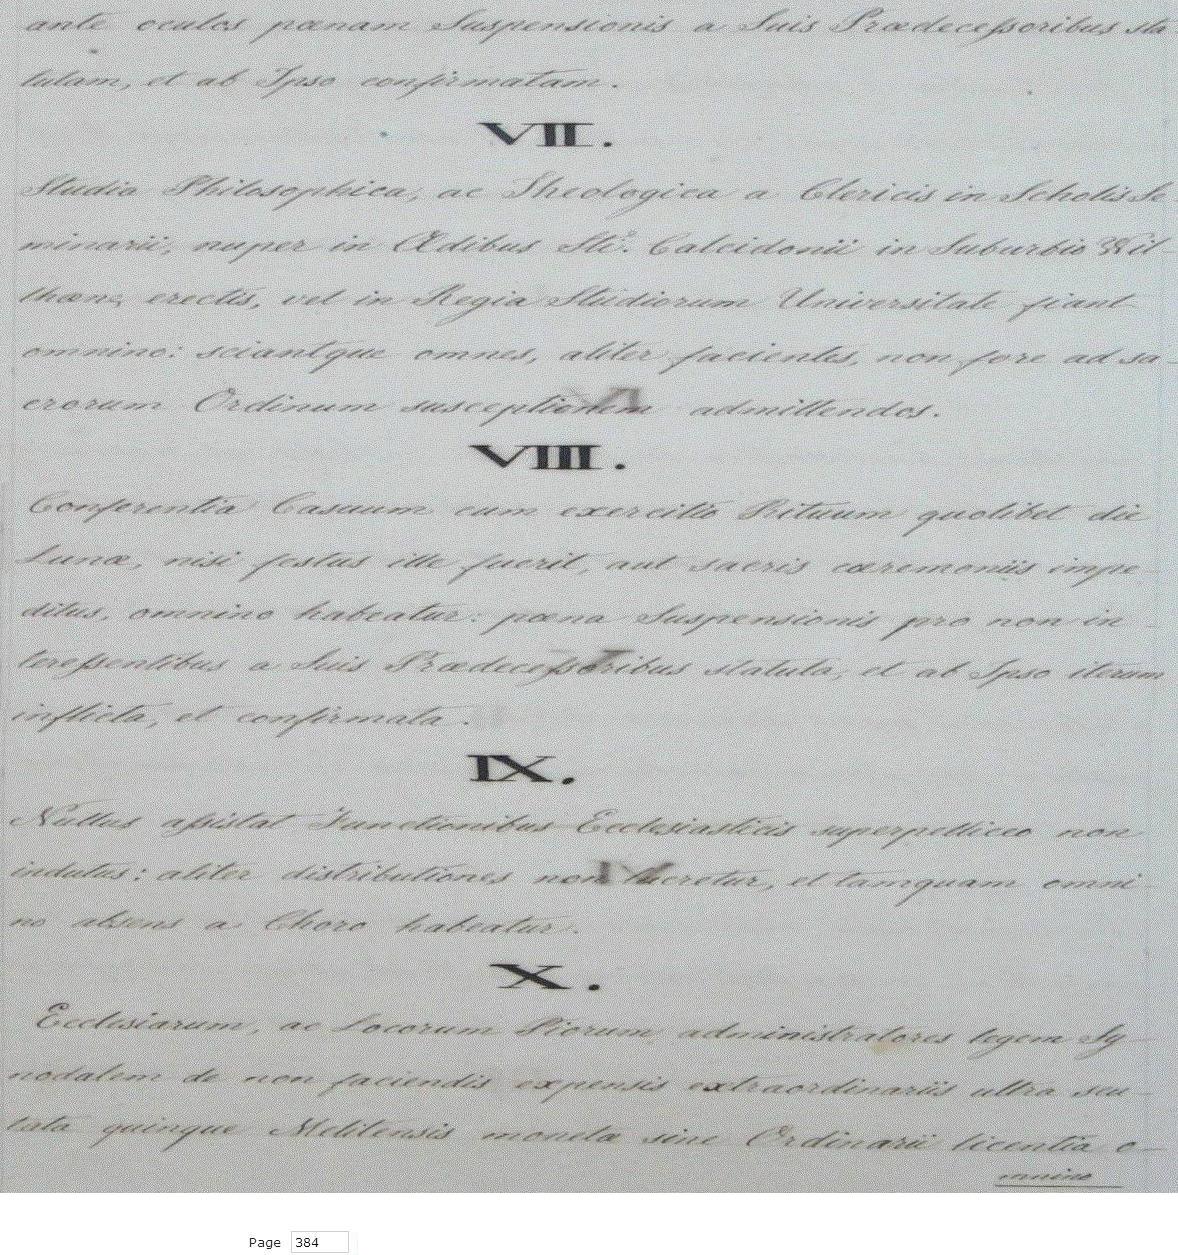 ante oculos pœnam Suspensionis a Suis Prædecessoribus sta-
tutam, et ab Ipso confirmatam.
VII.
Studia Philosophica, ac Theologica a Clericis in Scholis Se-
minarii, nuper in Ædibus Sti. Calcidonii in Suburbio Wil-
hœnæ erectis, vel in Regia Studiorum Universitate fiant
omnino: sciantque omnes, aliter facientes, non fore ad sa-
crorum Ordinum susceptionem admittendos.
VIII.
Conferentia Casuum cum exercitio Rituum quolibet die
Lunæ, nisi festus ille fuerit, aut sacris cæremoniis impe-
ditus, omnino habeatur: pœna Suspensionis pro non in-
teressentibus a Suis Prædecessoribus statuta, et ab Ipso iterum
inflicta, et confirmata.
IX.
Nullus assistat Functionibus Ecclesiasticis superpelliceo non
indutus: aliter distributiones non lucretur, et tamquam omni-
no absens a Choro habeatur.
X.
Ecclesiarum, ac Locorum Piorum administratores legem Sy-
nodalem de non faciendis expensis extraordinariis ultra scu-
tata quinque Melitensis monetæ sine Ordinarii licentia o-
mnino
Page 384